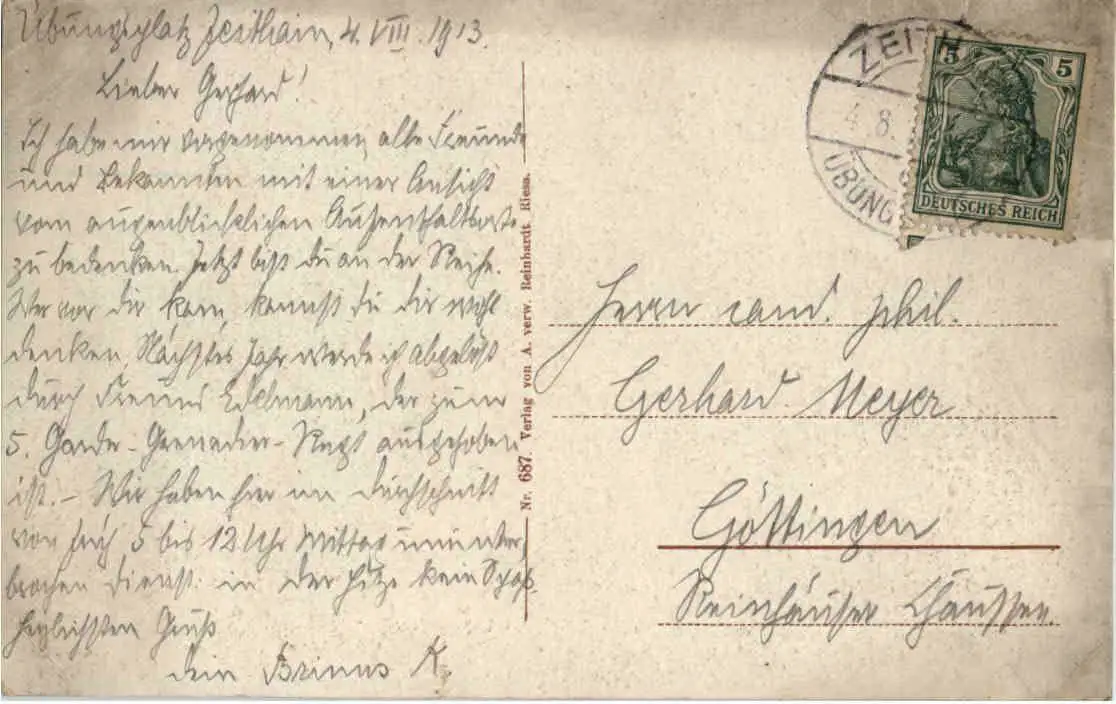 Übungsplatz Zeithain, 4. VIII. 1913.
Lieber Gerhard!
Ich habe mir vorgenommen, alle Freunde
und Bekannten mit einer Ansicht
vom augenblicklichen Aufenthaltsorte
zu bedenken. Jetzt bist du an der Reihe.
Wer vor dir kam, kannst du dir wohl
denken. Nächstes Jahr werde ich abgelöst
durch Freund Edelmann, der zum
5. Garde-Grenadier-Regt ausgehoben
ist. – Wir haben hier im Durchschnitt
von früh 5 bis 12 Uhr Mittag ununter
brochen Dienst. in der Hitze kein Spaß.
Herzlichsten Gruß
dein Brinus K.
Nr. 687. Verlag von A. verw. Reinhardt, Riesa.
ZEITH
4.8.
ÜBUNG
5 5
DEUTSCHES REICH
Herrn cand. phil.
Gerhard Meyer
Göttingen
Reinhäuser Chaussee